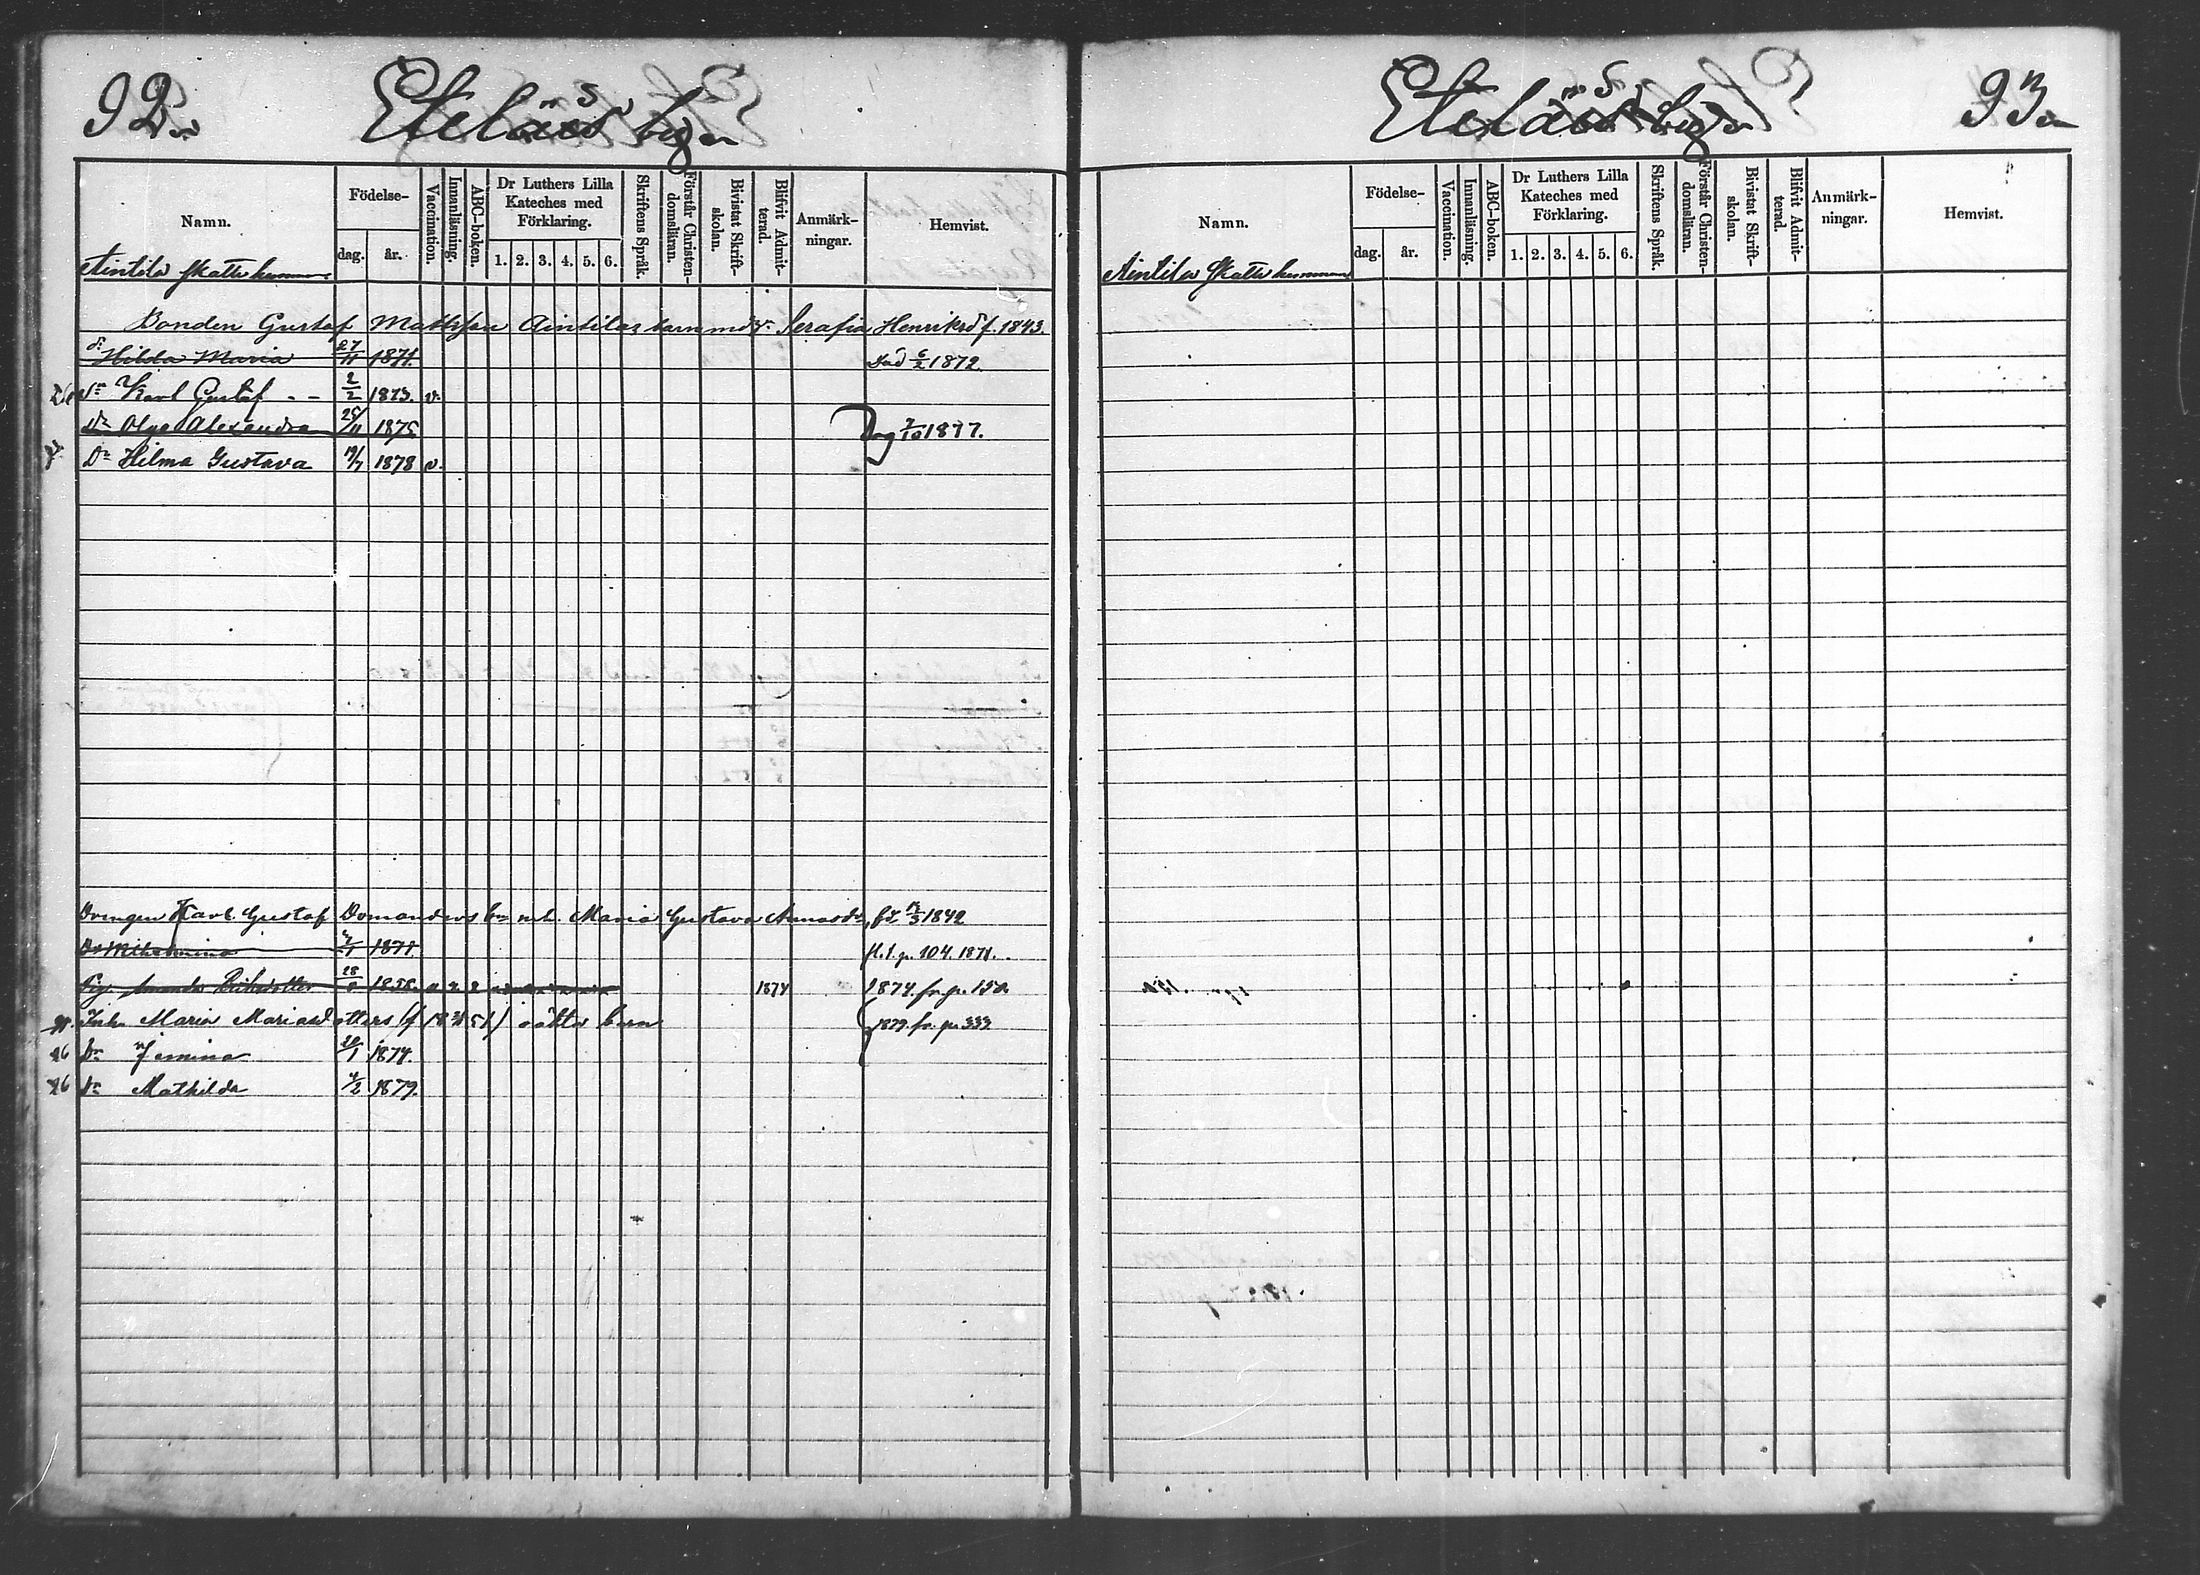 92
Eteläs by
Namn.
Födelse-
dag.
år.
Vaccination.
Innanläsning.
ABC-boken.
Dr Luthers Lilla
Kateches med
Förklaring.
1. 2. 3. 4. 5. 6.
Skriftens Språk.
Förstår Christen-
domsläran.
Bivistat Skrift-
skolan.
Blifvit Admit-
terad.
Anmärk-
ningar.
Hemvist.
Aintila Skattehemman
Bonden Gustaf Mattsson Aintilas barn md Serafia Henriksd f. 1843
Hilda Maria 27/11 1871. Död 6/2 1872
Dn Karl Gustaf - - 2/2 1873. v.
Dr Olga Alexandra 25/11 1875 Dog 7/10 1877.
Dr Hilma Gustava 19/7 1878 v.
Drengen Karl Gustaf Domanders bn m.h. Maria Gustava 1842
Dr Wilhelmina 1871 fl. t. p. 104. 1871.
Pig. Amanda 28 1858 1874 1874. fr. p. 150
Inh. Maria Mariasdotters (f 18 51) oäkta barn 1879. fr. p. 333
Dr Jemina 20/1 1874.
Dr Mathilda 4/2 1879.
93
Eteläs by
Namn.
Födelse-
dag.
år.
Vaccination.
Innanläsning.
ABC-boken.
Dr Luthers Lilla
Kateches med
Förklaring.
1. 2. 3. 4. 5. 6.
Skriftens Språk.
Förstår Christen-
domsläran.
Bivistat Skrift-
skolan.
Blifvit Admit-
terad.
Anmärk-
ningar.
Hemvist.
Aintila Skattehemman